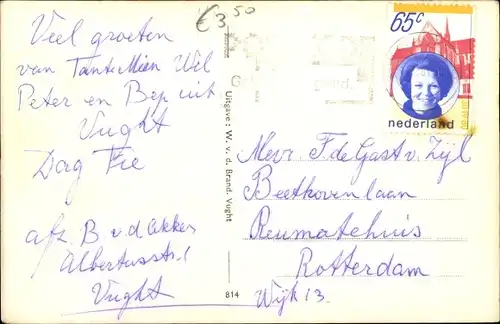 €3,50
Veel groeten
van Tante Mien Wil
Peter en Bep uit
Vught
Dag Fie
afz. B v d Akker
Albertusstr. 1
Vught
Uitgave: W. v. d. Brand. Vught
814
65c
nederland
Mevr F. de Gast v. Zijl
Beethovenlaan
Reumatehuis
Rotterdam
Wijk 13.